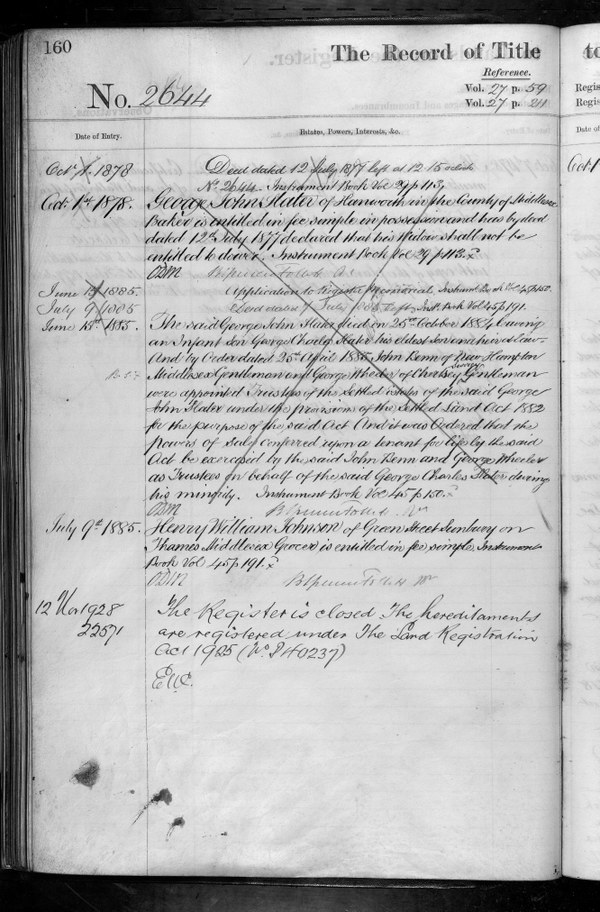 160
The Record of Title
Reference.
Vol. 27 p. 59
Vol. 27 p. 211
No. 2644
Date of Entry.
Estates, Powers, Interests, &c.
Oct. 1. 1878
Deed dated 12 July 1877 left at 12.15 o'clock
No. 2644. Instrument Book Vol 29 p 113
Oct. 1st 1878.
George John Slater of Hanworth in the County of Middlesex
Baker is entitled in fee simple in possession and has by deed
dated 12th July 1877 declared that his Widow shall not be
entitled to dower. Instrument Book Vol 29 p 113.
ODM
June 15 1885.
Application to Register Memorial. Instrumt Book Vol 45 p 150.
July 9 1885
Deed dated July 1885 left Inst. Book Vol 45 p 191.
June 15th 1885.
The said George John Slater died on 25th October 1884 leaving
an Infant Son George Charles Slater his eldest Son and heir at law
And by Order dated 25th April 1885 John Benn of New Hampton
Middlesex Gentleman and George Wheeler of Chertsey Surrey Gentleman
were appointed Trustees of the Settled estates of the said George
John Slater under the provisions of the Settled Land Act 1882
for the purpose of the said Act And it was Ordered that the
powers of Sale conferred upon a tenant for life by the said
Act be exercised by the said John Benn and George Wheeler
as Trustees on behalf of the said George Charles Slater during
his minority. Instrument Book Vol 45 p 150.
ODM
July 9th 1885.
Henry William Johnson of Green Street Sunbury on
Thames Middlesex Grocer is entitled in fee simple. Instrument
Book Vol 45 p 191.
ODM
12 Nov 1928
The Register is closed The hereditaments
22571
are registered under The Land Registration
Act 1925 (No. P 40237)
to
Regis
Regis
Date of
Oct 1